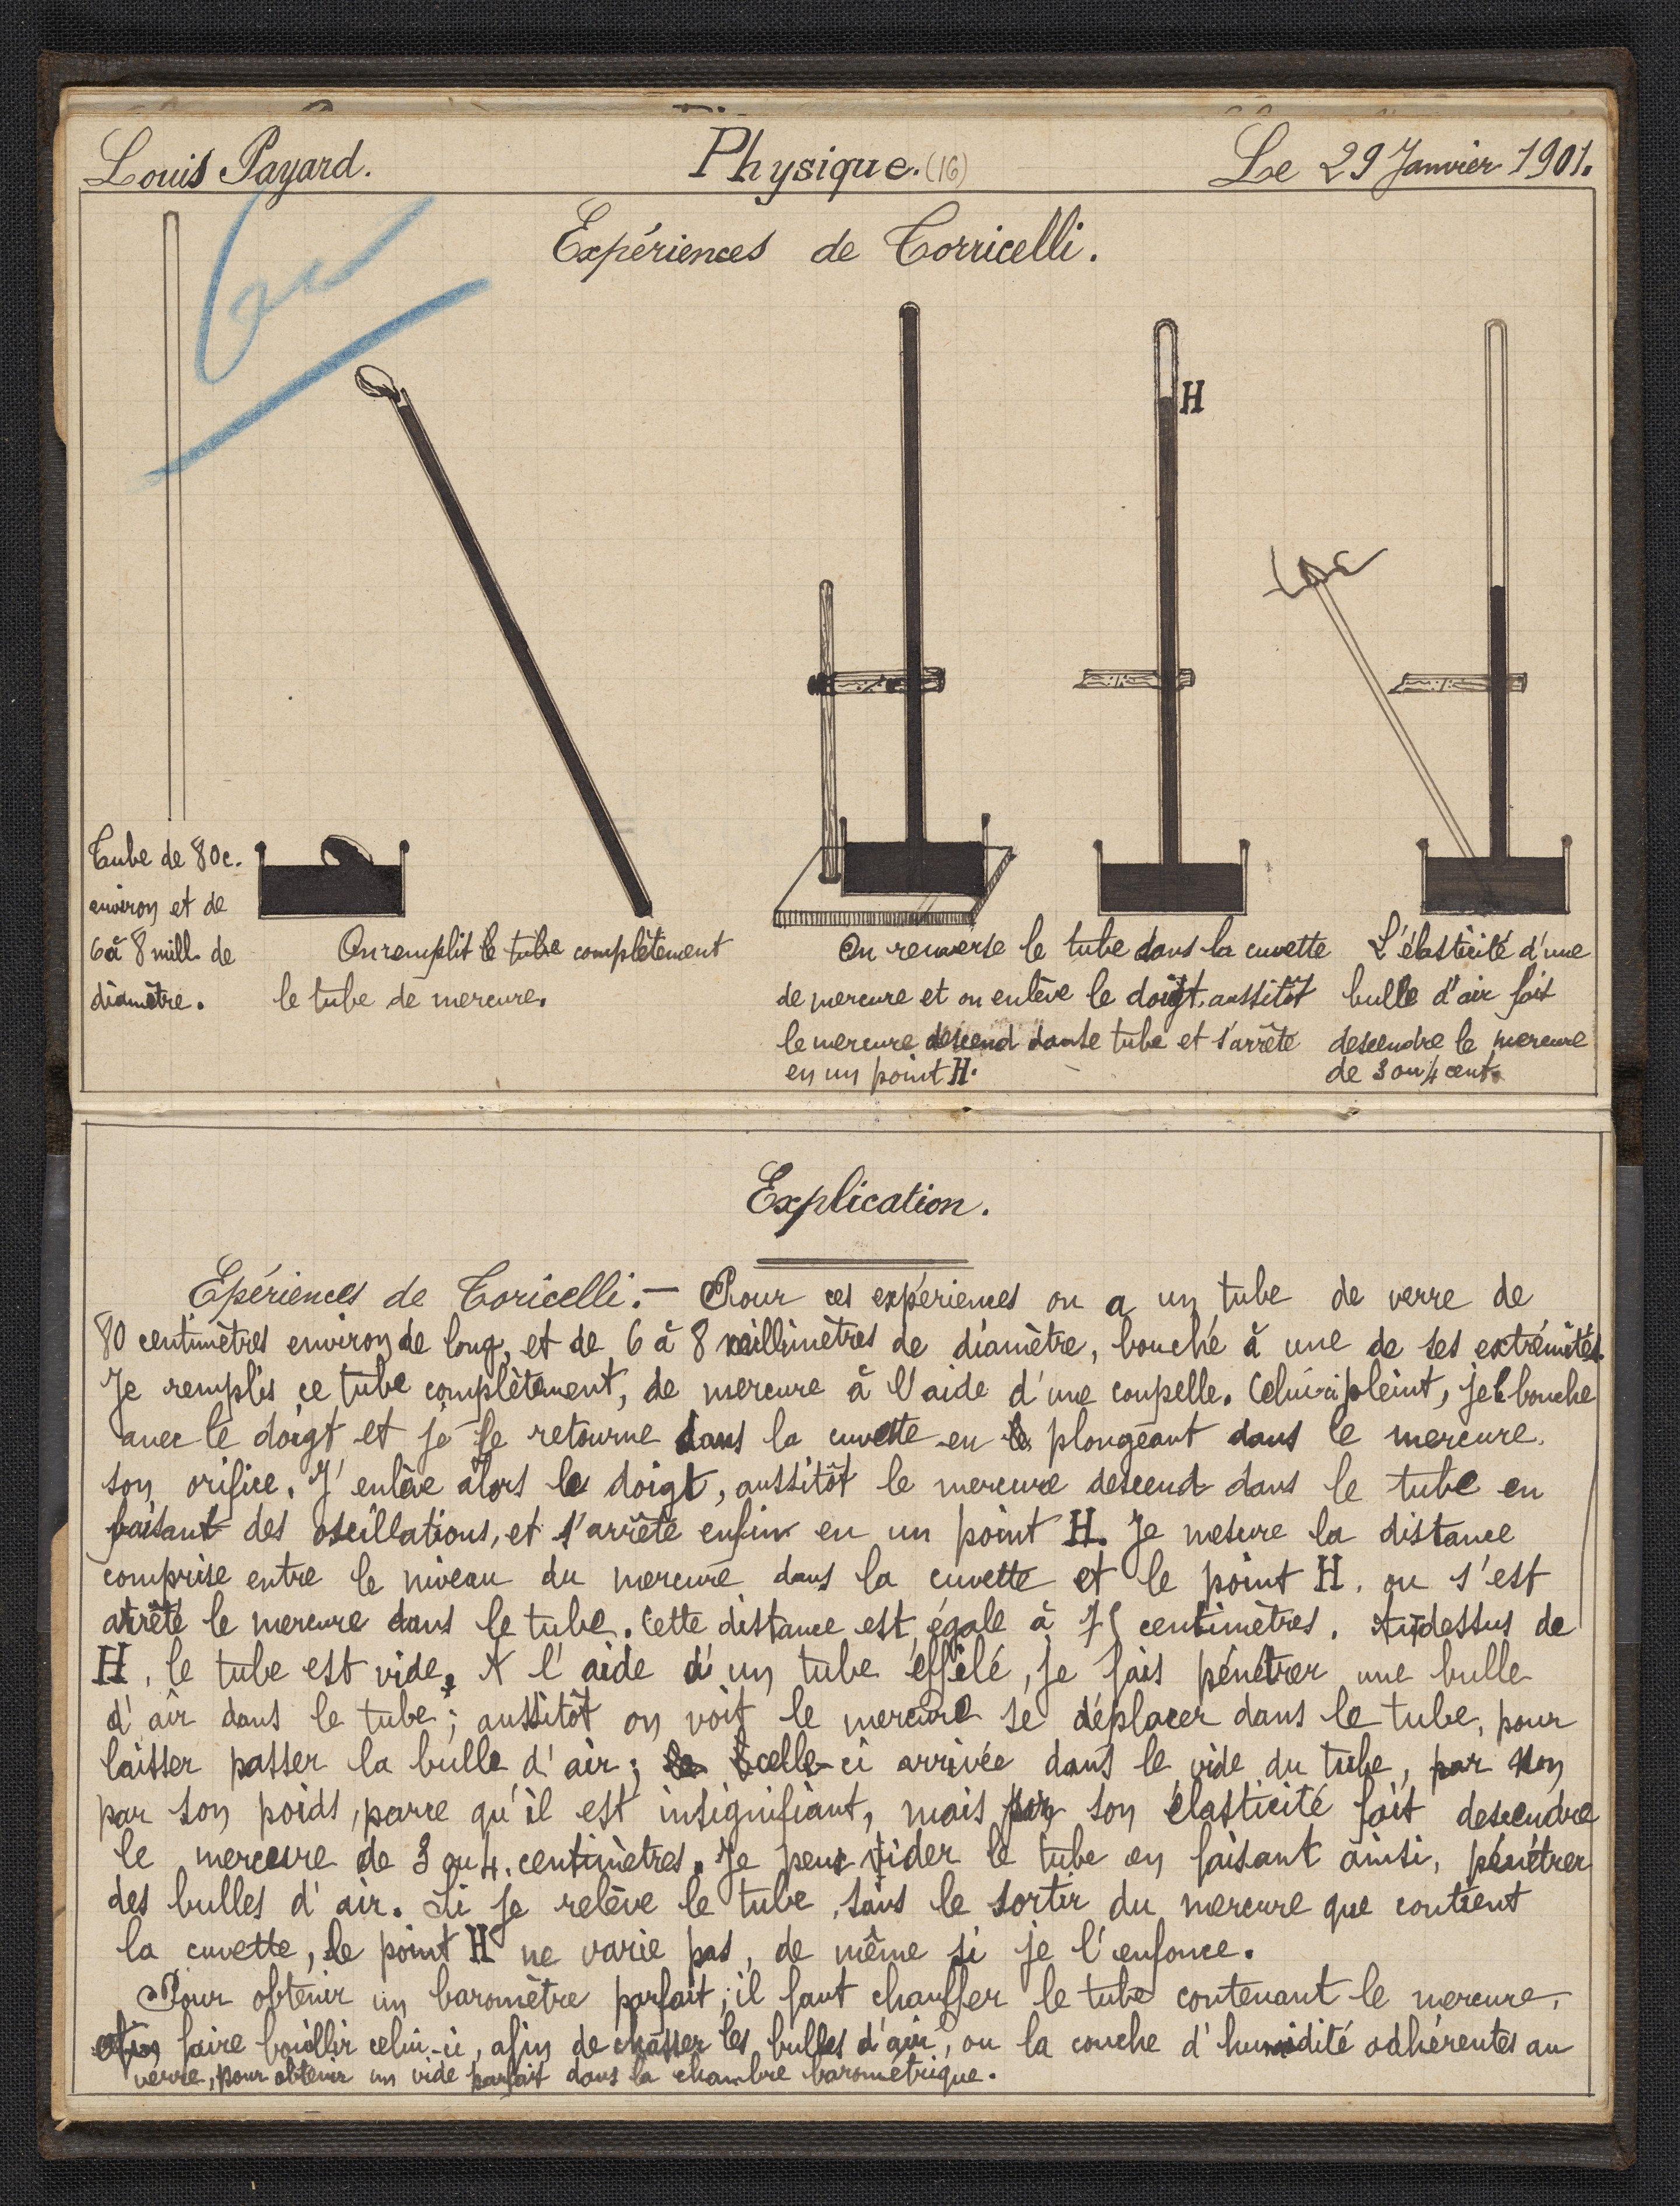 Louis Payard.
Physique. (16)
Le 29 Janvier 1901.
Expériences de Torricelli.
H
Tube de 80c.
environ et de
6 à 8 mill. de
diamètre.
On remplit le tube complètement
le tube de mercure.
On renverse le tube dans la cuvette
de mercure et on enlève le doigt, aussitôt
le mercure descend dans le tube et s'arrête
en un point H.
L'élasticité d'une
bulle d'air fait
descendre le mercure
de 3 ou 4 cent.
Explication.
Epériences de Toricelli. — Pour ces expériences on a un tube de verre de
80 centimètres environ de long, et de 6 à 8 millimètres de diamètre, bouché à une de ses extrémités
Je remplis ce tube complètement, de mercure à l'aide d'une coupelle. Celui-ci pleint, je le bouche
avec le doigt et je le retourne dans la cuvette en plongeant dans le mercure.
son orifice. J'enlève alors le doigt, aussitôt le mercure descend dans le tube en
faisant des oscillations, et s'arrête enfin en un point H. Je mesure la distance
comprise entre le niveau du mercure dans la cuvette et le point H. ou s'est
arrêté le mercure dans le tube. Cette distance est égale à 75 centimètres. Au-dessus de
H, le tube est vide. A l'aide d'un tube effilé, je fais pénétrer une bulle
d'air dans le tube ; aussitôt on voit le mercure se déplacer dans le tube, pour
laisser passer la bulle d'air ; celle-ci arrivée dans le vide du tube, par non
par son poids, parce qu'il est insignifiant, mais par son élasticité fait descendre
le mercure de 3 ou 4 centimètres. Je peux vider le tube en faisant ainsi, pénétrer
des bulles d'air. Si je relève le tube, sans le sortir du mercure que contient
la cuvette, le point H ne varie pas, de même si je l'enfonce.
Pour obtenir un baromètre parfait, il faut chauffer le tube contenant le mercure,
faire bouillir celui-ci, afin de chasser les bulles d'air, ou la couche d'humidité adhérentes au
verre, pour obtenir un vide parfait dans la chambre barométrique.